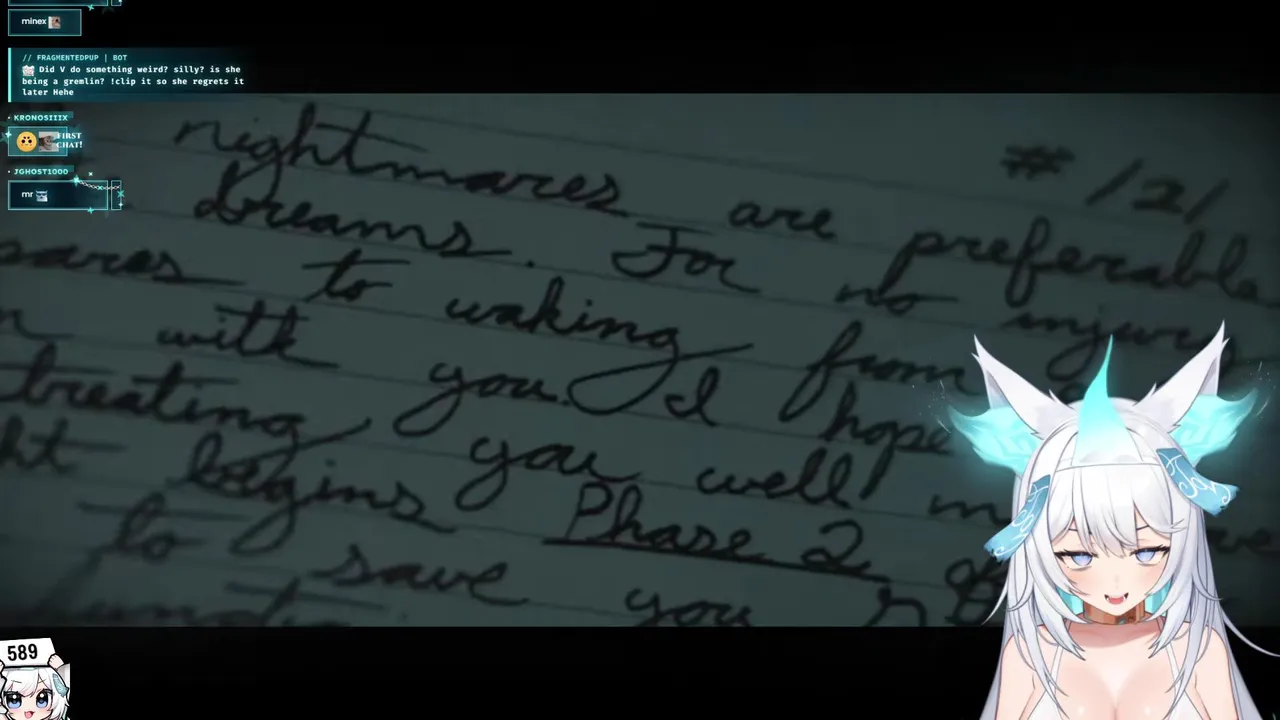 minex
// FRAGMENTEDPUP | BOT
Did V do something weird? silly? is she
being a gremlin? !clip it so she regrets it
later Hehe
• KRONOSIIIX
FIRST
CHAT!
• JGHOST1000
mr
# 121
nightmares are preferable
dreams. For no injury
to waking from
with you. I hope
treating you well
begins Phase 2
to save you
589